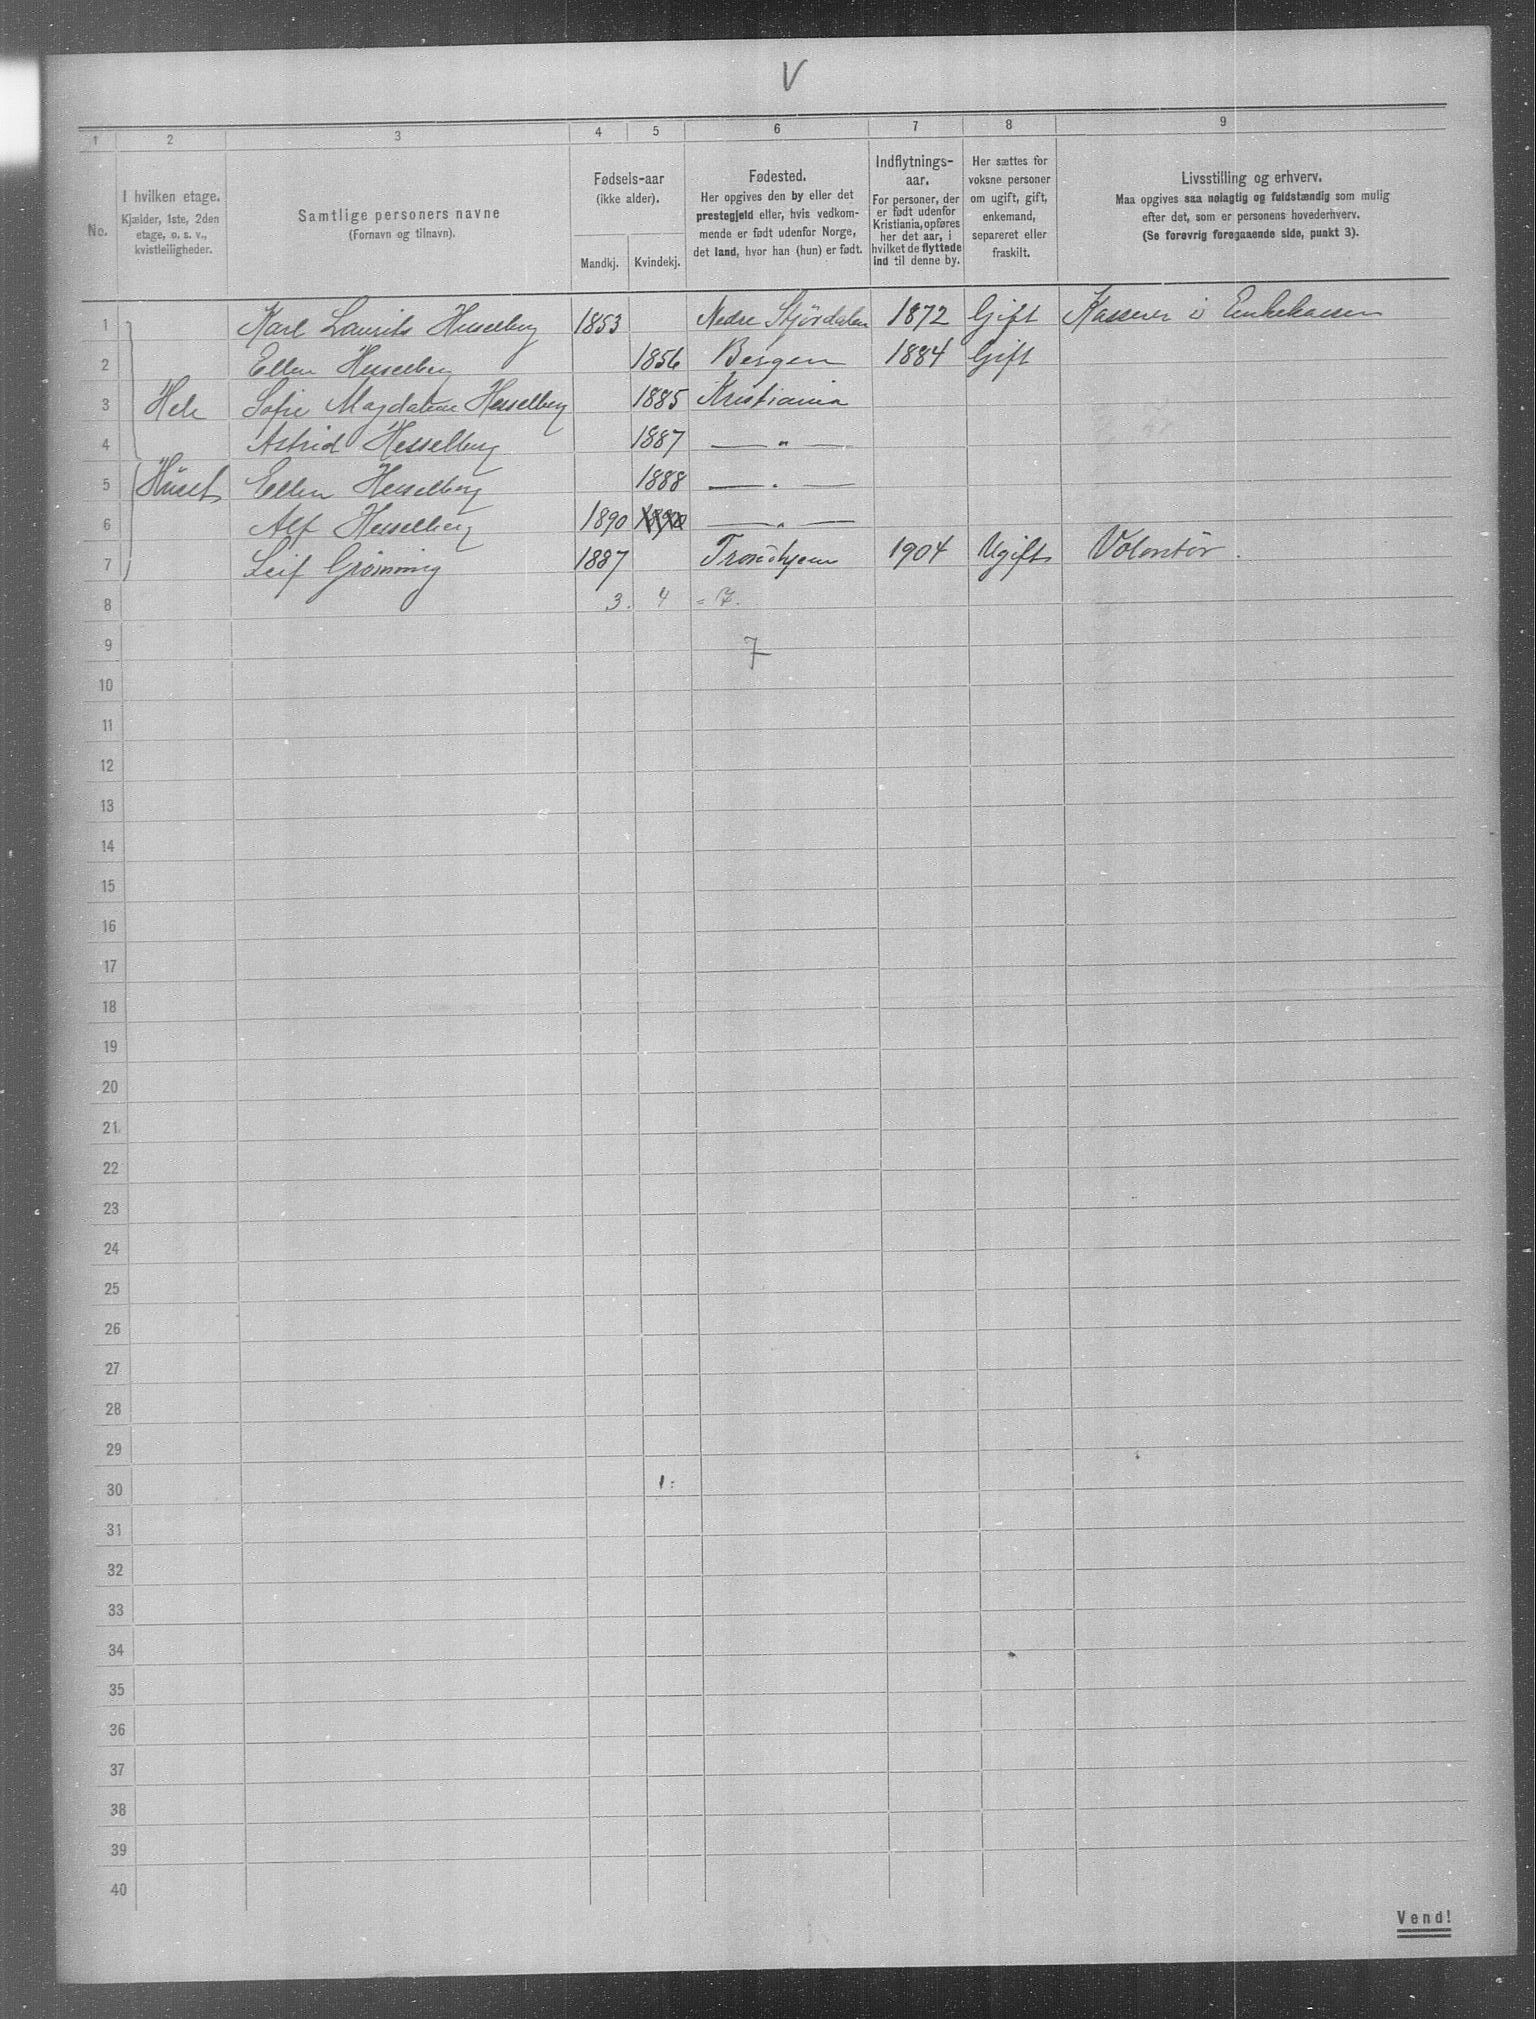 V
1 2 3 4 5 6 7 8 9
No.
I hvilken etage.
Kjælder, 1ste, 2den
etage, o. s. v.,
kvistleiligheder.
Samtlige personers navne
(Fornavn og tilnavn).
Fødsels-aar
(ikke alder).
Mandkj. Kvindekj.
Fødested.
Her opgives den by eller det
prestegjeld eller, hvis vedkom-
mende er født udenfor Norge,
det land, hvor han (hun) er født.
Indflytnings-
aar.
For personer, der
er født udenfor
Kristiania, opføres
her det aar, i
hvilket de flyttede
ind til denne by.
Her sættes for
voksne personer
om ugift, gift,
enkemand,
separeret eller
fraskilt.
Livsstilling og erhverv.
Maa opgives saa nøiagtig og fuldstændig som mulig
efter det, som er personens hovederhverv.
(Se forøvrig foregaaende side, punkt 3).
1 Karl Laurits Hesselberg 1853 Nedre Stjørdalen 1872 Gift Kasserer i Enkekassen
2 Ellen Hesselberg 1856 Bergen 1884 Gift
3 Hele Sofie Magdalene Hesselberg 1885 Kristiania
4 Astrid Hesselberg 1887 — " —
5 Huset Ellen Hesselberg 1888 — " —
6 Alf Hesselberg 1890 1890 — " —
7 Leif Grømning 1887 Trondhjem 1904 Ugift Volontør.
8 3. 4 = 7.
9 7
10
11
12
13
14
15
16
17
18
19
20
21
22
23
24
25
26
27
28
29
30
31
32
33
34
35
36
37
38
39
40
Vend!